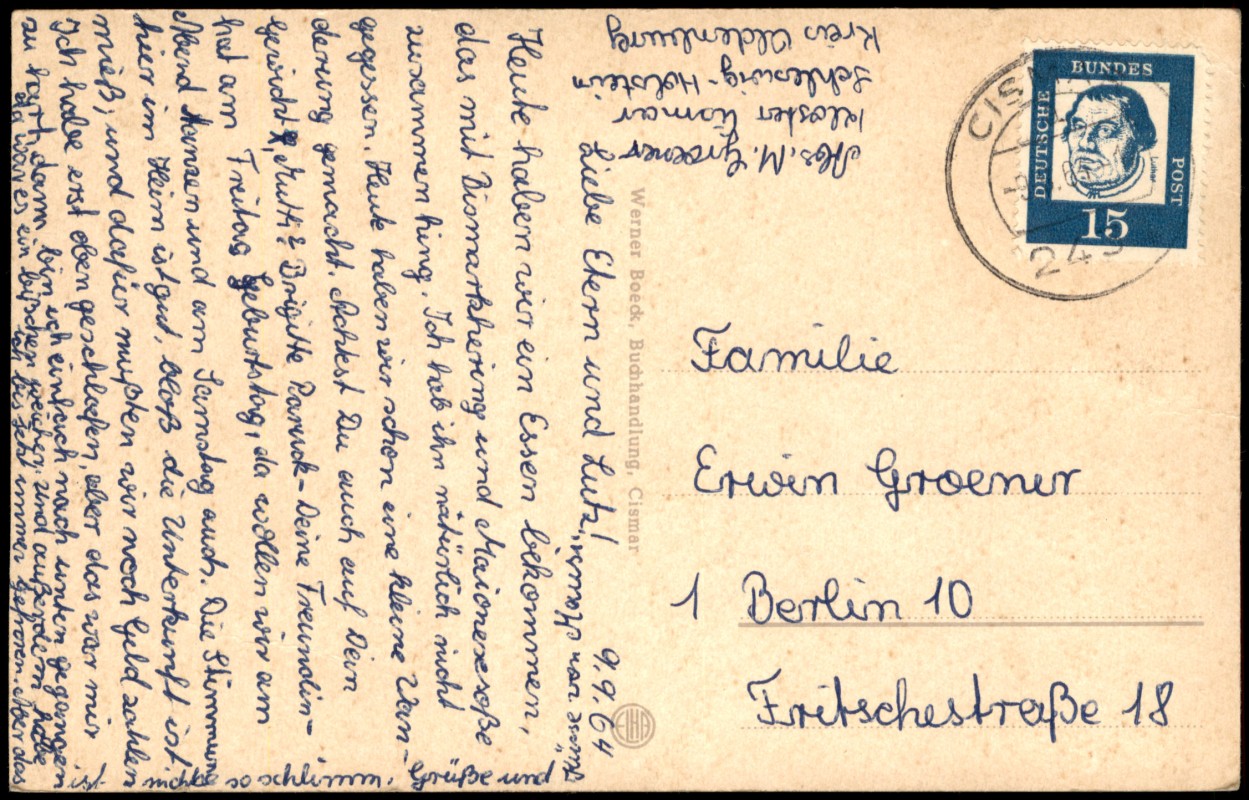 Abs. M. Groener
Kloster Cismar
Schleswig-Holstein
Kreis Oldenburg
9.9.64
Liebe Etern und Lutz!
Heute haben wir ein Essen bekommen,
das mit Bismarkhering und Maionesesoße
zusammen hing. Ich hab ihn natürlich nicht
gegessen. Heute haben wir schon eine kleine Wan-
derung gemacht. Achtest Du auch auf Dein
Gewicht, Mutti? Brigitte - Deine Freundin -
hat am Freitag Geburtstag, da wollen wir am
Abend tanzen und am Samstag auch. Die Stimmung
hier im Heim ist gut, bloß die Unterkunft ist
mieß, und dafür mußten wir noch Geld zahlen
Ich habe erst oben geschlafen, aber das war mir
zu hart, dann bin ich einfach nach unten gegangen
da war es ein bischen weicher, und außerdem habe
ich bis jetzt immer gefroren. Aber das
ist nicht so schlimm. Grüße und
von
Werner Boeck, Buchhandlung, Cismar
DEUTSCHE BUNDES POST
Luther
15
CISMAR
243
Familie
Erwin Groener
1 Berlin 10
Fritschestraße 18